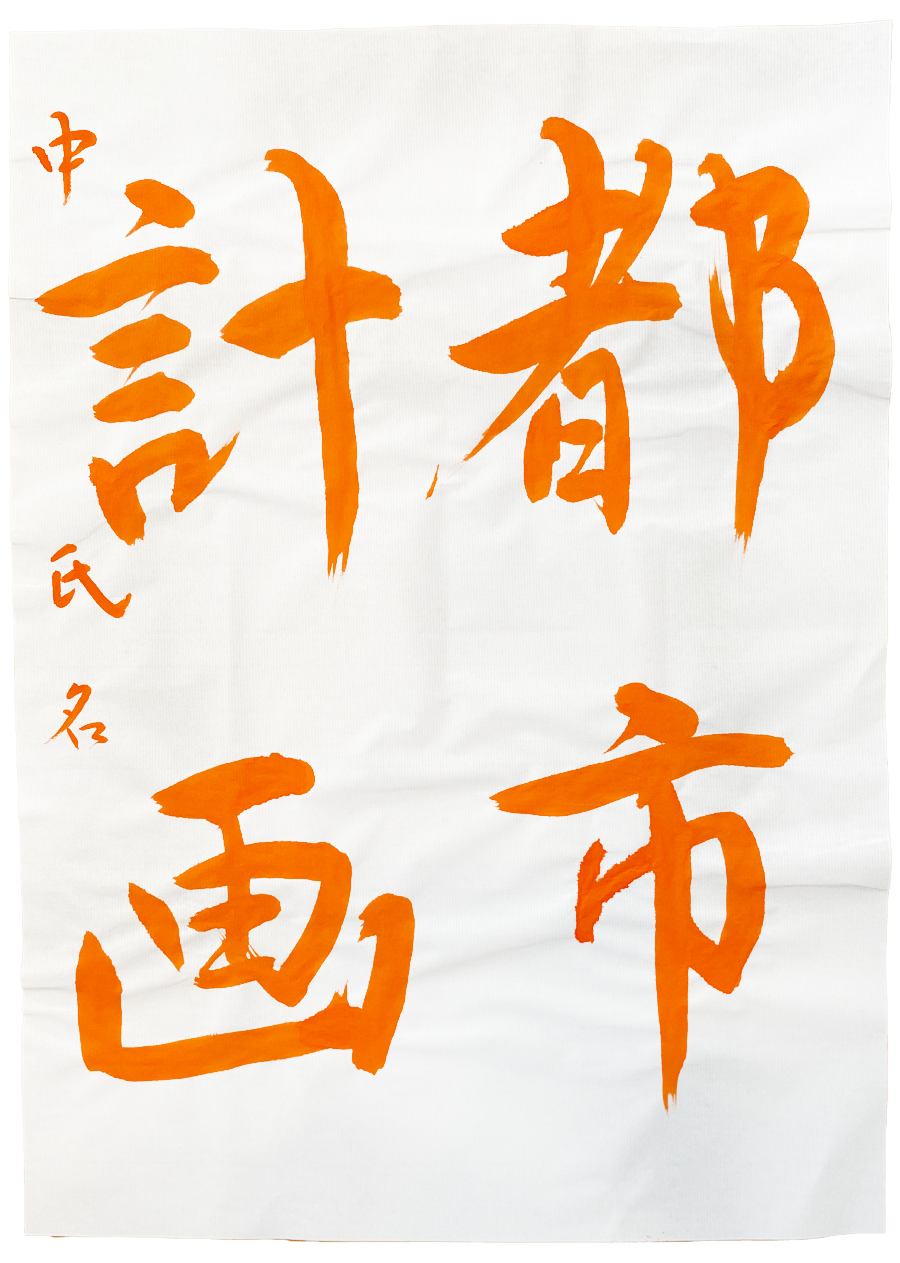 都市
計画
中氏名